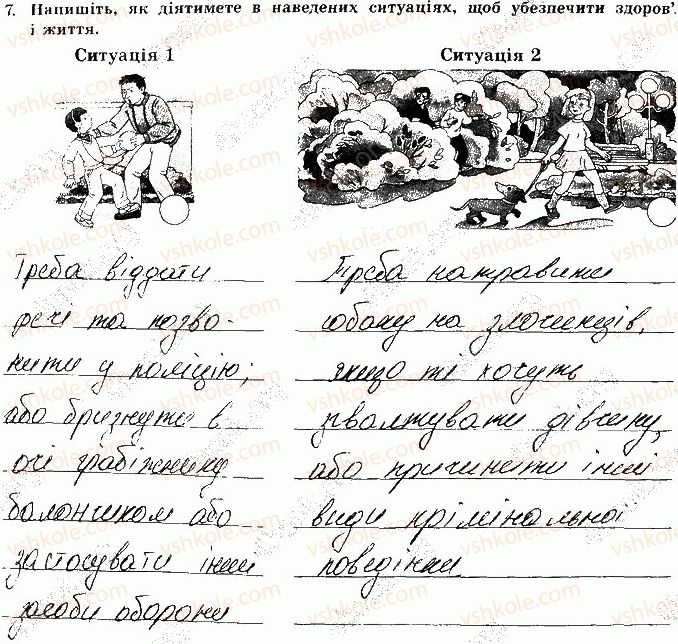 7. Напишіть, як діятимете в наведених ситуаціях, щоб убезпечити здоров'
і життя.
Ситуація 1
Треба віддати
речі та подзво-
нити у поліцію;
або бризнути в
очі грабіжнику
балончиком або
застосувати інші
засоби оборони
Ситуація 2
Треба направити
собаку на злочинців,
якщо ті хочуть
зґвалтувати дівчину,
або причинити інші
види кримінальної
поведінки.
vshkole.com